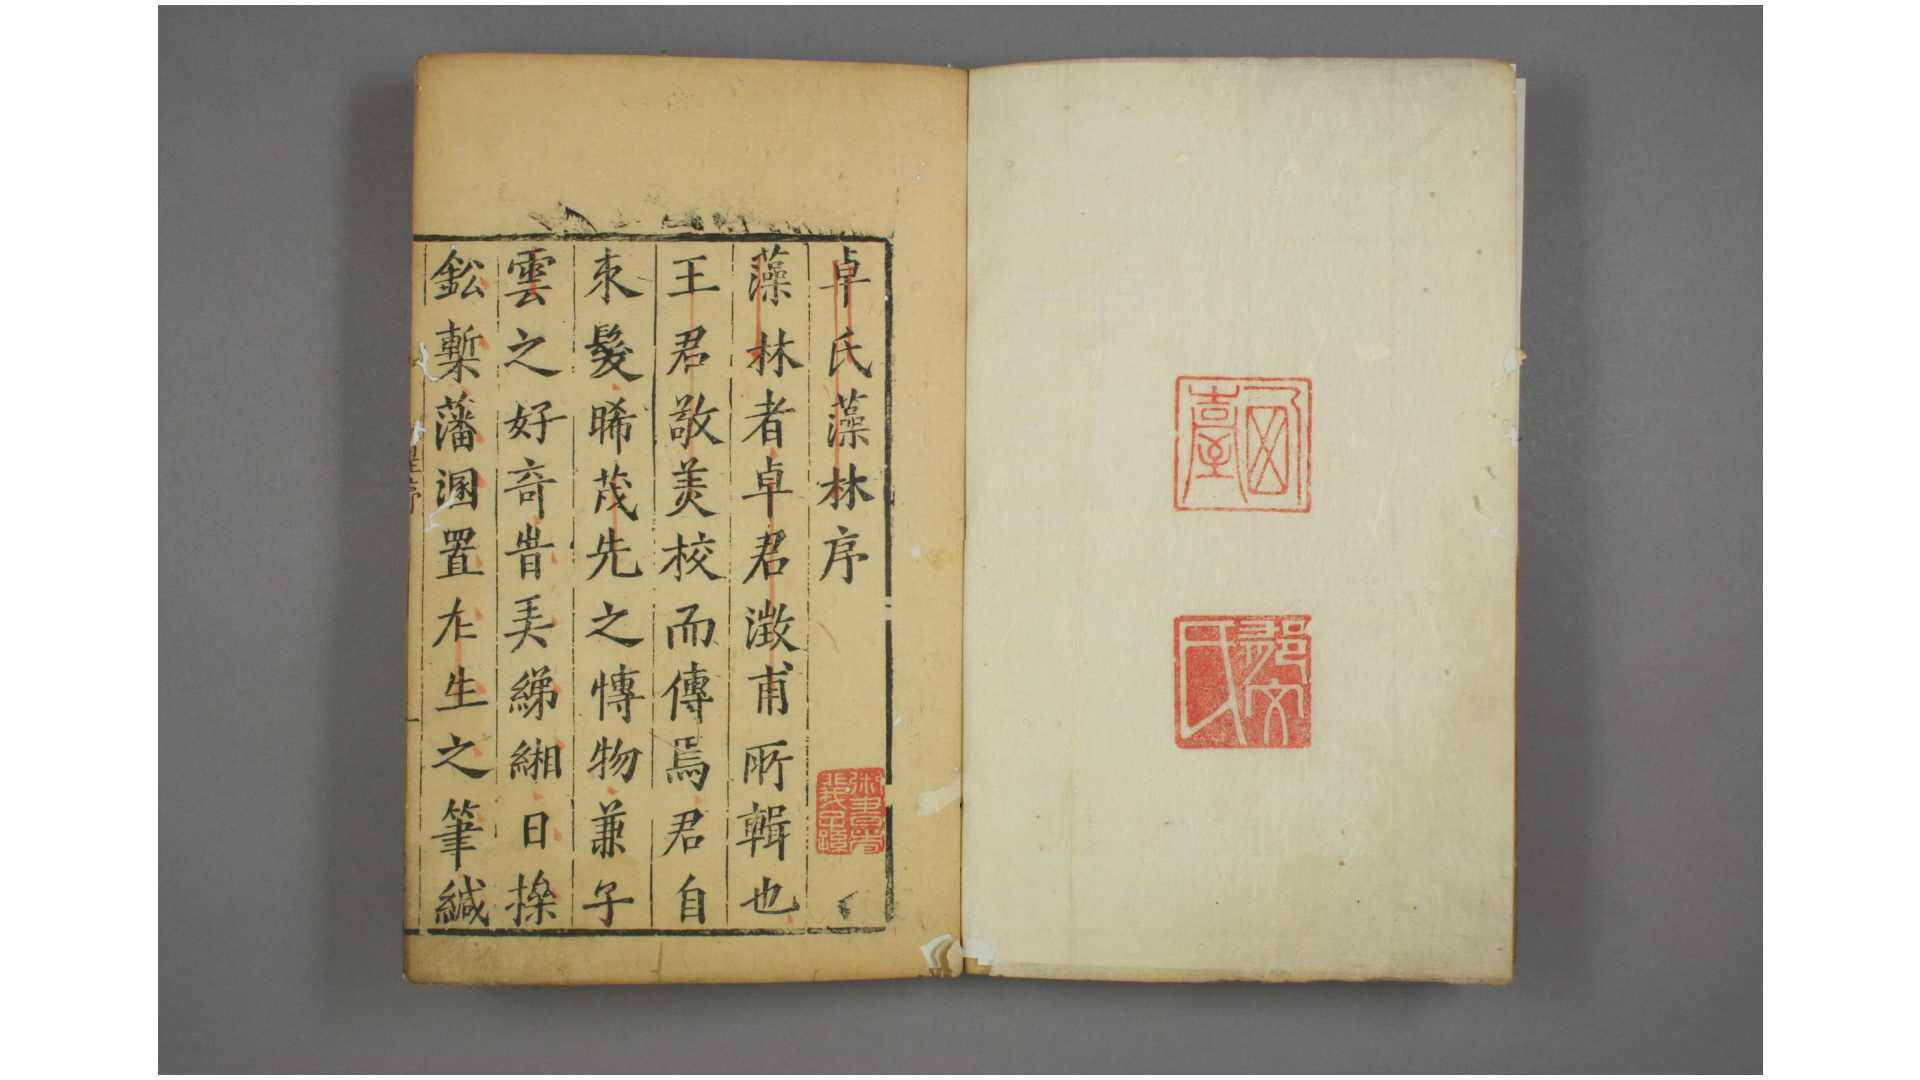 卓氏藻林序
藻林者卓君澂甫所輯也
王君敬美校而傳焉君自
束髮睎茂先之愽物兼子
雲之好奇旹綈緗日操
鈆槧藩溷置左生之筆緘